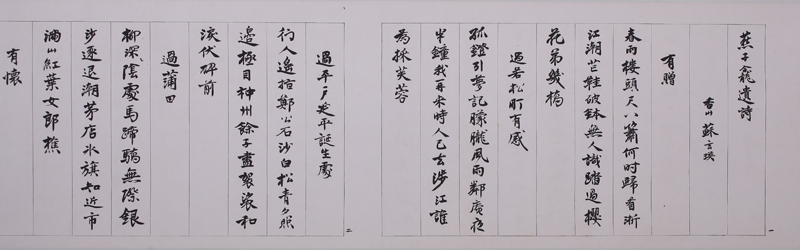 燕子龕遺詩
香山蘇玄瑛
有贈
春雨樓頭尺八簫何时歸看浙
江潮芒鞋破鉢無人識踏過櫻
花弟幾橋
過若松町有感
孤鐙引夢記朦朧風雨鄰庵夜
半鐘我再來時人已去涉江誰
為採芙蓉
一
過平戶延平誕生處
行人遙指鄭公石沙白松青夕照
邊極目神州餘子盡袈裟和
淚伏碑前
過蒲田
柳深陰處馬蹄驕無際銀
沙逐退潮茅店冰旗知近市
滿山紅葉女郎樵
有懷
二